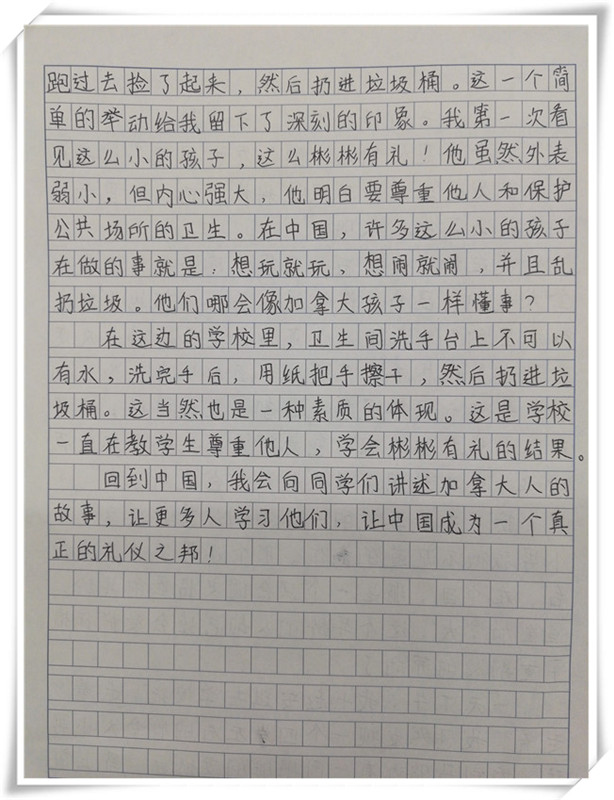 跑过去捡了起来，然后扔进垃圾桶。这一个简
单的举动给我留下了深刻的印象。我第一次看
见这么小的孩子，这么彬彬有礼！他虽然外表
弱小，但内心强大，他明白要尊重他人和保护
公共场所的卫生。在中国，许多这么小的孩子
在做的事就是：想玩就玩，想闹就闹，并且乱
扔垃圾。他们哪会像加拿大孩子一样懂事？
在这边的学校里，卫生间洗手台上不可以
有水，洗完手后，用纸把手擦干，然后扔进垃
圾桶。这当然也是一种素质的体现。这是学校
一直在教学生尊重他人，学会彬彬有礼的结果。
回到中国，我会向同学们讲述加拿大人的
故事，让更多人学习他们，让中国成为一个真
正的礼仪之邦！